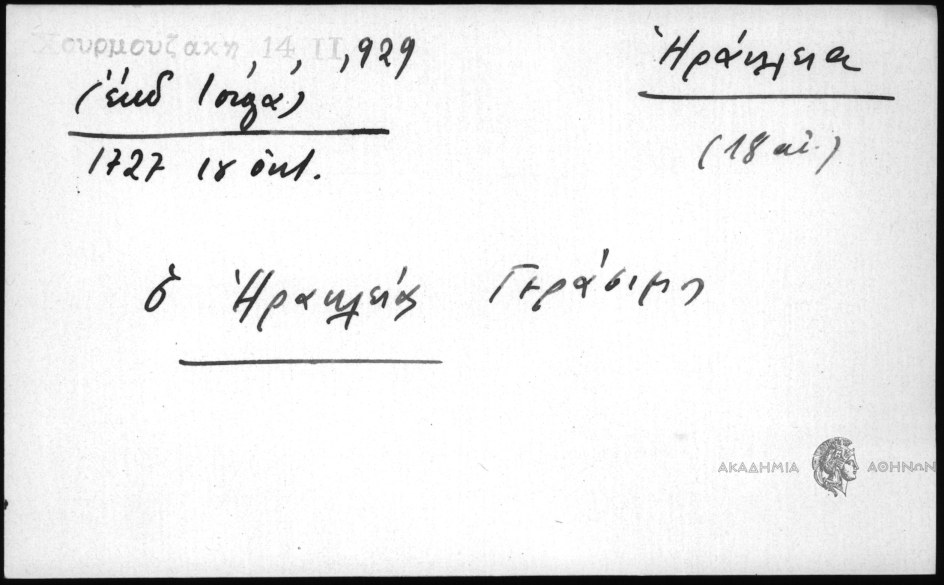 Χουρμουζακη 14 II, 929
Ἡράκλεια
(ἐκδ
(18 αἰ.)
1727 18 ὀκτ.
ὁ Ἡρακλείας Γεράσιμος
ΑΚΑΔΗΜΙΑ ΑΘΗΝΩΝ